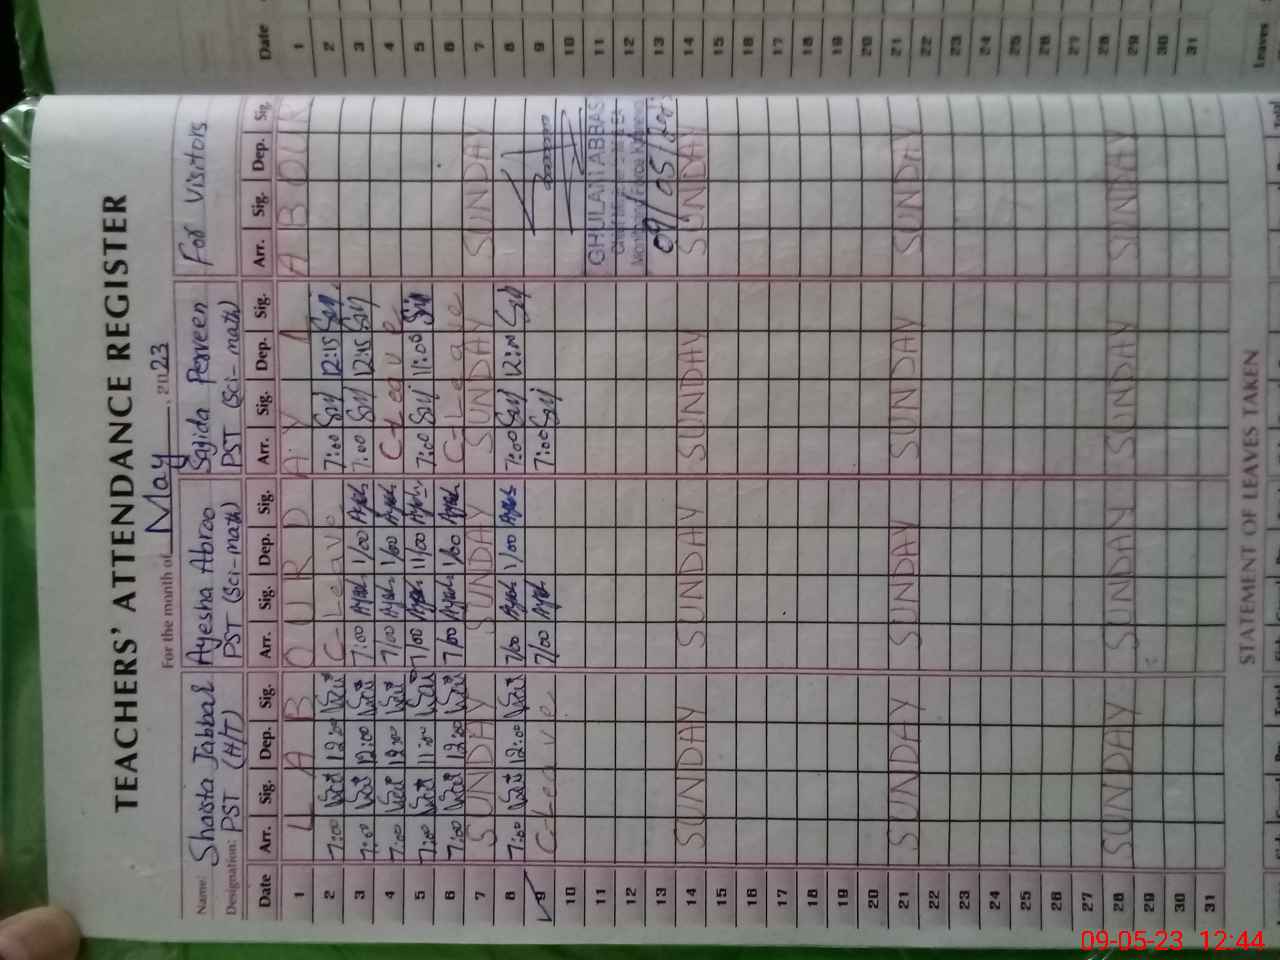 TEACHERS' ATTENDANCE REGISTER
For the month of May, 2023
Name: Shaista Jabbar Ayesha Abroo Sajida Perveen For Visitors
Designation: PST (H/T) PST (Sci-math) PST (Sci-math)
Date Arr. Sig. Dep. Sig. Arr. Sig. Dep. Sig. Arr. Sig. Dep. Sig. Arr. Sig. Dep. Sig.
1 L A B O U R D A Y L A B O U R
2 7:00 12:00 C-Leave 7:00 12:15
3 7:00 12:00 7:00 1/00 7:00 12:15
4 7:00 12:00 7/00 1/00 C-Leave
5 7:00 11:00 7/00 11/00 7:00 11:00
6 7:00 12:00 7/00 1/00 C-Leave
7 SUNDAY SUNDAY SUNDAY SUNDAY
8 7:00 12:00 7/00 1/00 7:00
9 C-Leave 7/00 7:00
10
11 GHULAM ABBAS
12
13 09/05/2023
14 SUNDAY SUNDAY SUNDAY SUNDAY
15
16
17
18
19
20
21 SUNDAY SUNDAY SUNDAY SUNDAY
22
23
24
25
26
27
28 SUNDAY SUNDAY SUNDAY SUNDAY
29
30
31
STATEMENT OF LEAVES TAKEN
Date
1
2
3
4
5
6
7
8
9
10
11
12
13
14
15
16
17
18
19
20
21
22
23
24
25
26
27
28
29
30
31
Leaves
09-05-23 12:44